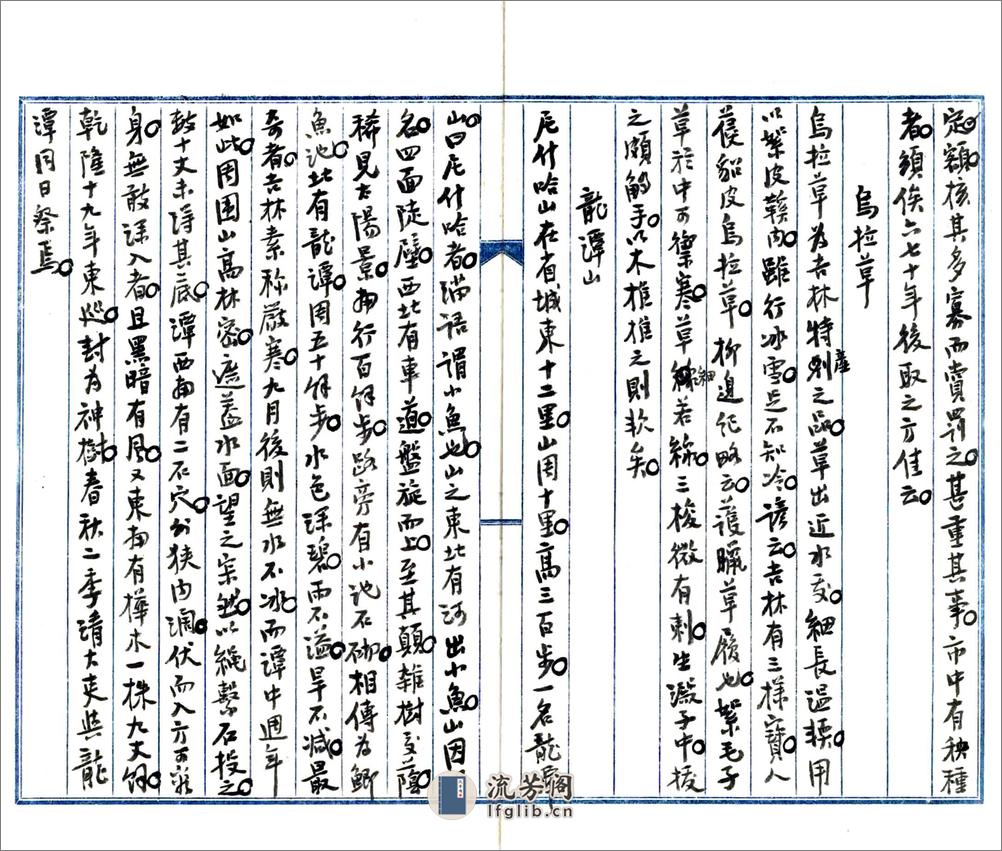 定額核其多寡而賞罰之甚重其事市中有秧種
者須俟六七十年後取之方佳云
烏拉草
烏拉草為吉林特產之品草出近水處細長溫軟用
以絮皮鞋內雖行冰雪足不知冷諺云吉林有三樣寶人
葠貂皮烏拉草柳邊紀略云護臘草履也絮毛子
草於中可禦寒草細若線三棱微有刺生澱子中拔
之頗觸手以木椎椎之則軟矣
龍潭山
尼什哈山在省城東十二里山周十里高三百步一名龍潭
山曰尼什哈者滿語謂小魚也山之東北有河出小魚山因
名四面陡壁西北有車道盤旋而上至其顛雜樹交蔭
稀見太陽景南行百餘步路旁有小池石砌相傳為鯽
魚池北有龍潭周五十餘步水色深碧雨不溢旱不減最
奇者吉林素稱嚴寒九月後則無水不冰而潭中週年
如此周圍山高林密遮蓋水面望之窅然以繩繫石投之
數十丈未得其底潭西南有二石穴外狹內濶伏而入方可容
身無敢深入者且黑暗有風又東南有樺木一株九丈餘
乾隆十九年東巡封為神樹春秋二季請大吏與龍
潭同日祭焉
流芳閣
lfglib.cn